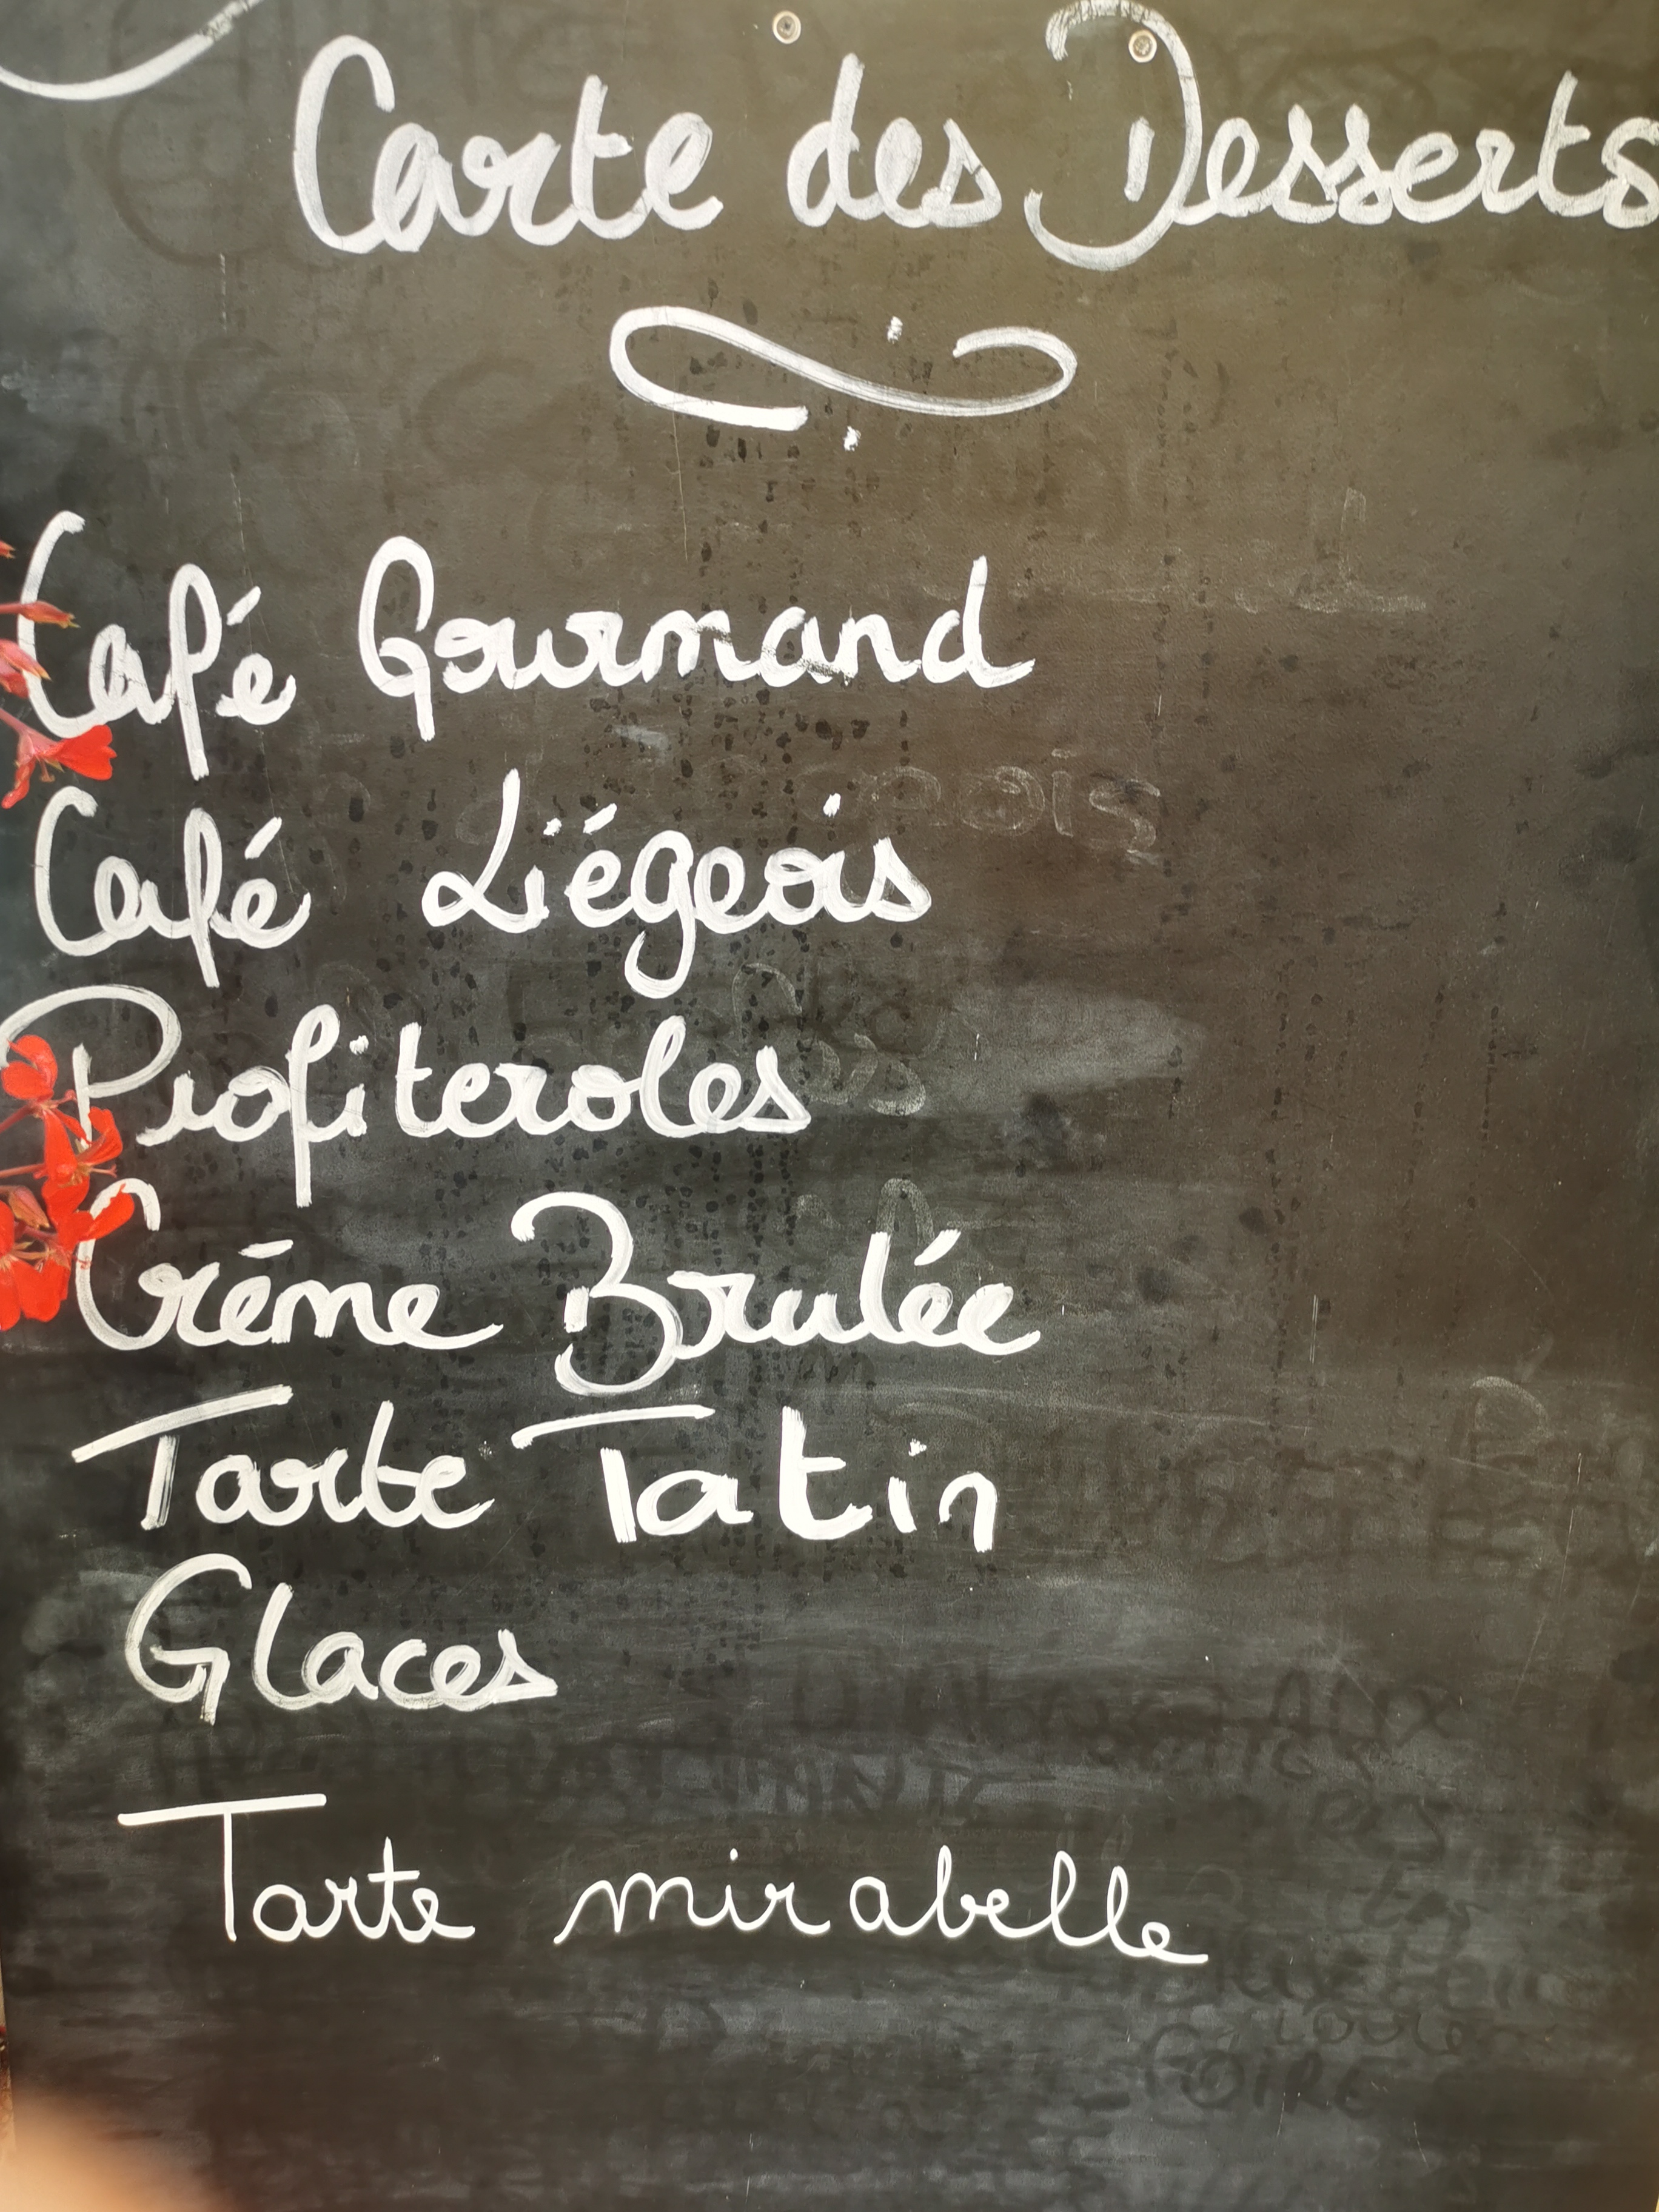 Carte des Desserts
Café Gourmand
Café Liégeois
Profiteroles
Crème Brulée
Tarte Tatin
Glaces
Tarte mirabelle